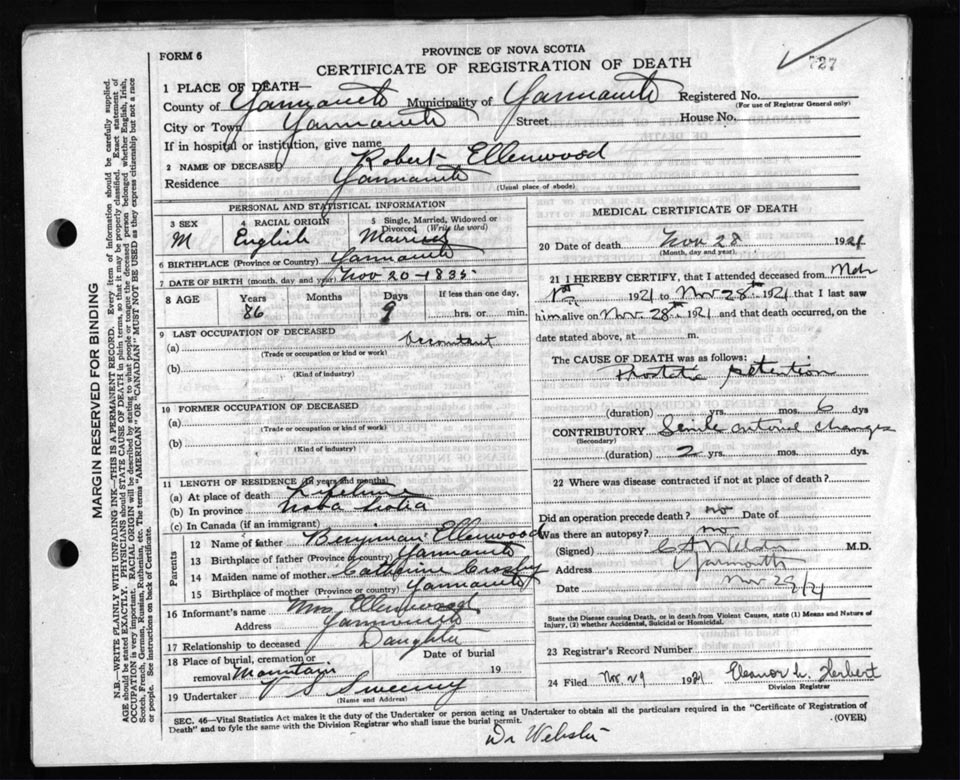 PROVINCE OF NOVA SCOTIA
FORM 6
CERTIFICATE OF REGISTRATION OF DEATH
727
1 PLACE OF DEATH—
County of Yarmouth Municipality of Yarmouth Registered No.
(For use of Registrar General only)
City or Town Yarmouth Street House No.
If in hospital or institution, give name
2 NAME OF DECEASED Robert Ellenwood
Residence Yarmouth (Usual place of abode)
PERSONAL AND STATISTICAL INFORMATION
3 SEX 4 RACIAL ORIGIN 5 Single, Married, Widowed or Divorced (Write the word)
M English Married
6 BIRTHPLACE (Province or Country) Yarmouth
7 DATE OF BIRTH (month, day and year) Nov 20-1835
8 AGE Years Months Days If less than one day,
86 9 hrs. or min.
9 LAST OCCUPATION OF DECEASED
(a) Accountant
(Trade or occupation or kind or work)
(b)
(Kind of industry)
10 FORMER OCCUPATION OF DECEASED
(a)
(Trade or occupation or kind of work)
(b)
(Kind of industry)
11 LENGTH OF RESIDENCE (in years and months)
(a) At place of death Lifetime
(b) In province Nova Scotia
(c) In Canada (if an immigrant)
Parents
12 Name of father Benjiman Ellenwood
13 Birthplace of father (Province or country) Yarmouth
14 Maiden name of mother Catherine Crosby
15 Birthplace of mother (Province or country) Yarmouth
16 Informant's name Mrs. Ellenwood
Address Yarmouth
17 Relationship to deceased Daughter
18 Place of burial, cremation or removal Mountain Date of burial 19
19 Undertaker V S Sweeney
(Name and Address)
MEDICAL CERTIFICATE OF DEATH
20 Date of death Nov 28 1921
(Month, day and year)
21 I HEREBY CERTIFY, that I attended deceased from Nov
1st 1921 to Nov. 28th 1921 that I last saw
him alive on Nov. 28th 1921 and that death occurred, on the
date stated above, at m.
The CAUSE OF DEATH was as follows:
Prostatic Retention
(duration) yrs. mos. 6 dys
CONTRIBUTORY Senile arterial changes
(Secondary)
(duration) 2 yrs. mos. dys.
22 Where was disease contracted if not at place of death?
Did an operation precede death? no Date of
Was there an autopsy? no
(Signed) C A Webster M.D.
Address Yarmouth
Date Nov 29/21
State the Disease causing Death, or in death from Violent Causes, state (1) Means and Nature of
Injury, (2) whether Accidental, Suicidal or Homicidal.
23 Registrar's Record Number
24 Filed Nov. 29 1921 Eleanor L. Herbert
Division Registrar
SEC. 46—Vital Statistics Act makes it the duty of the Undertaker or person acting as Undertaker to obtain all the particulars required in the "Certificate of Registration of
Death" and to fyle the same with the Division Registrar who shall issue the burial permit. (OVER)
Dr Webster
MARGIN RESERVED FOR BINDING
N.B.—WRITE PLAINLY WITH UNFADING INK—THIS IS A PERMANENT RECORD. Every item of information should be carefully supplied.
AGE should be stated EXACTLY. PHYSICIANS should STATE CAUSE OF DEATH in plain terms, so that it may be properly classified. Exact statement of
OCCUPATION is very important. RACIAL ORIGIN will be described by stating to what people or tongue the deceased person belonged whether English, Irish,
Scotch, French, German, Russian, Ruthenian, etc. The terms "AMERICAN" or "CANADIAN" MUST NOT BE USED as they express citizenship but not a race
or people. See instructions on back of Certificate.